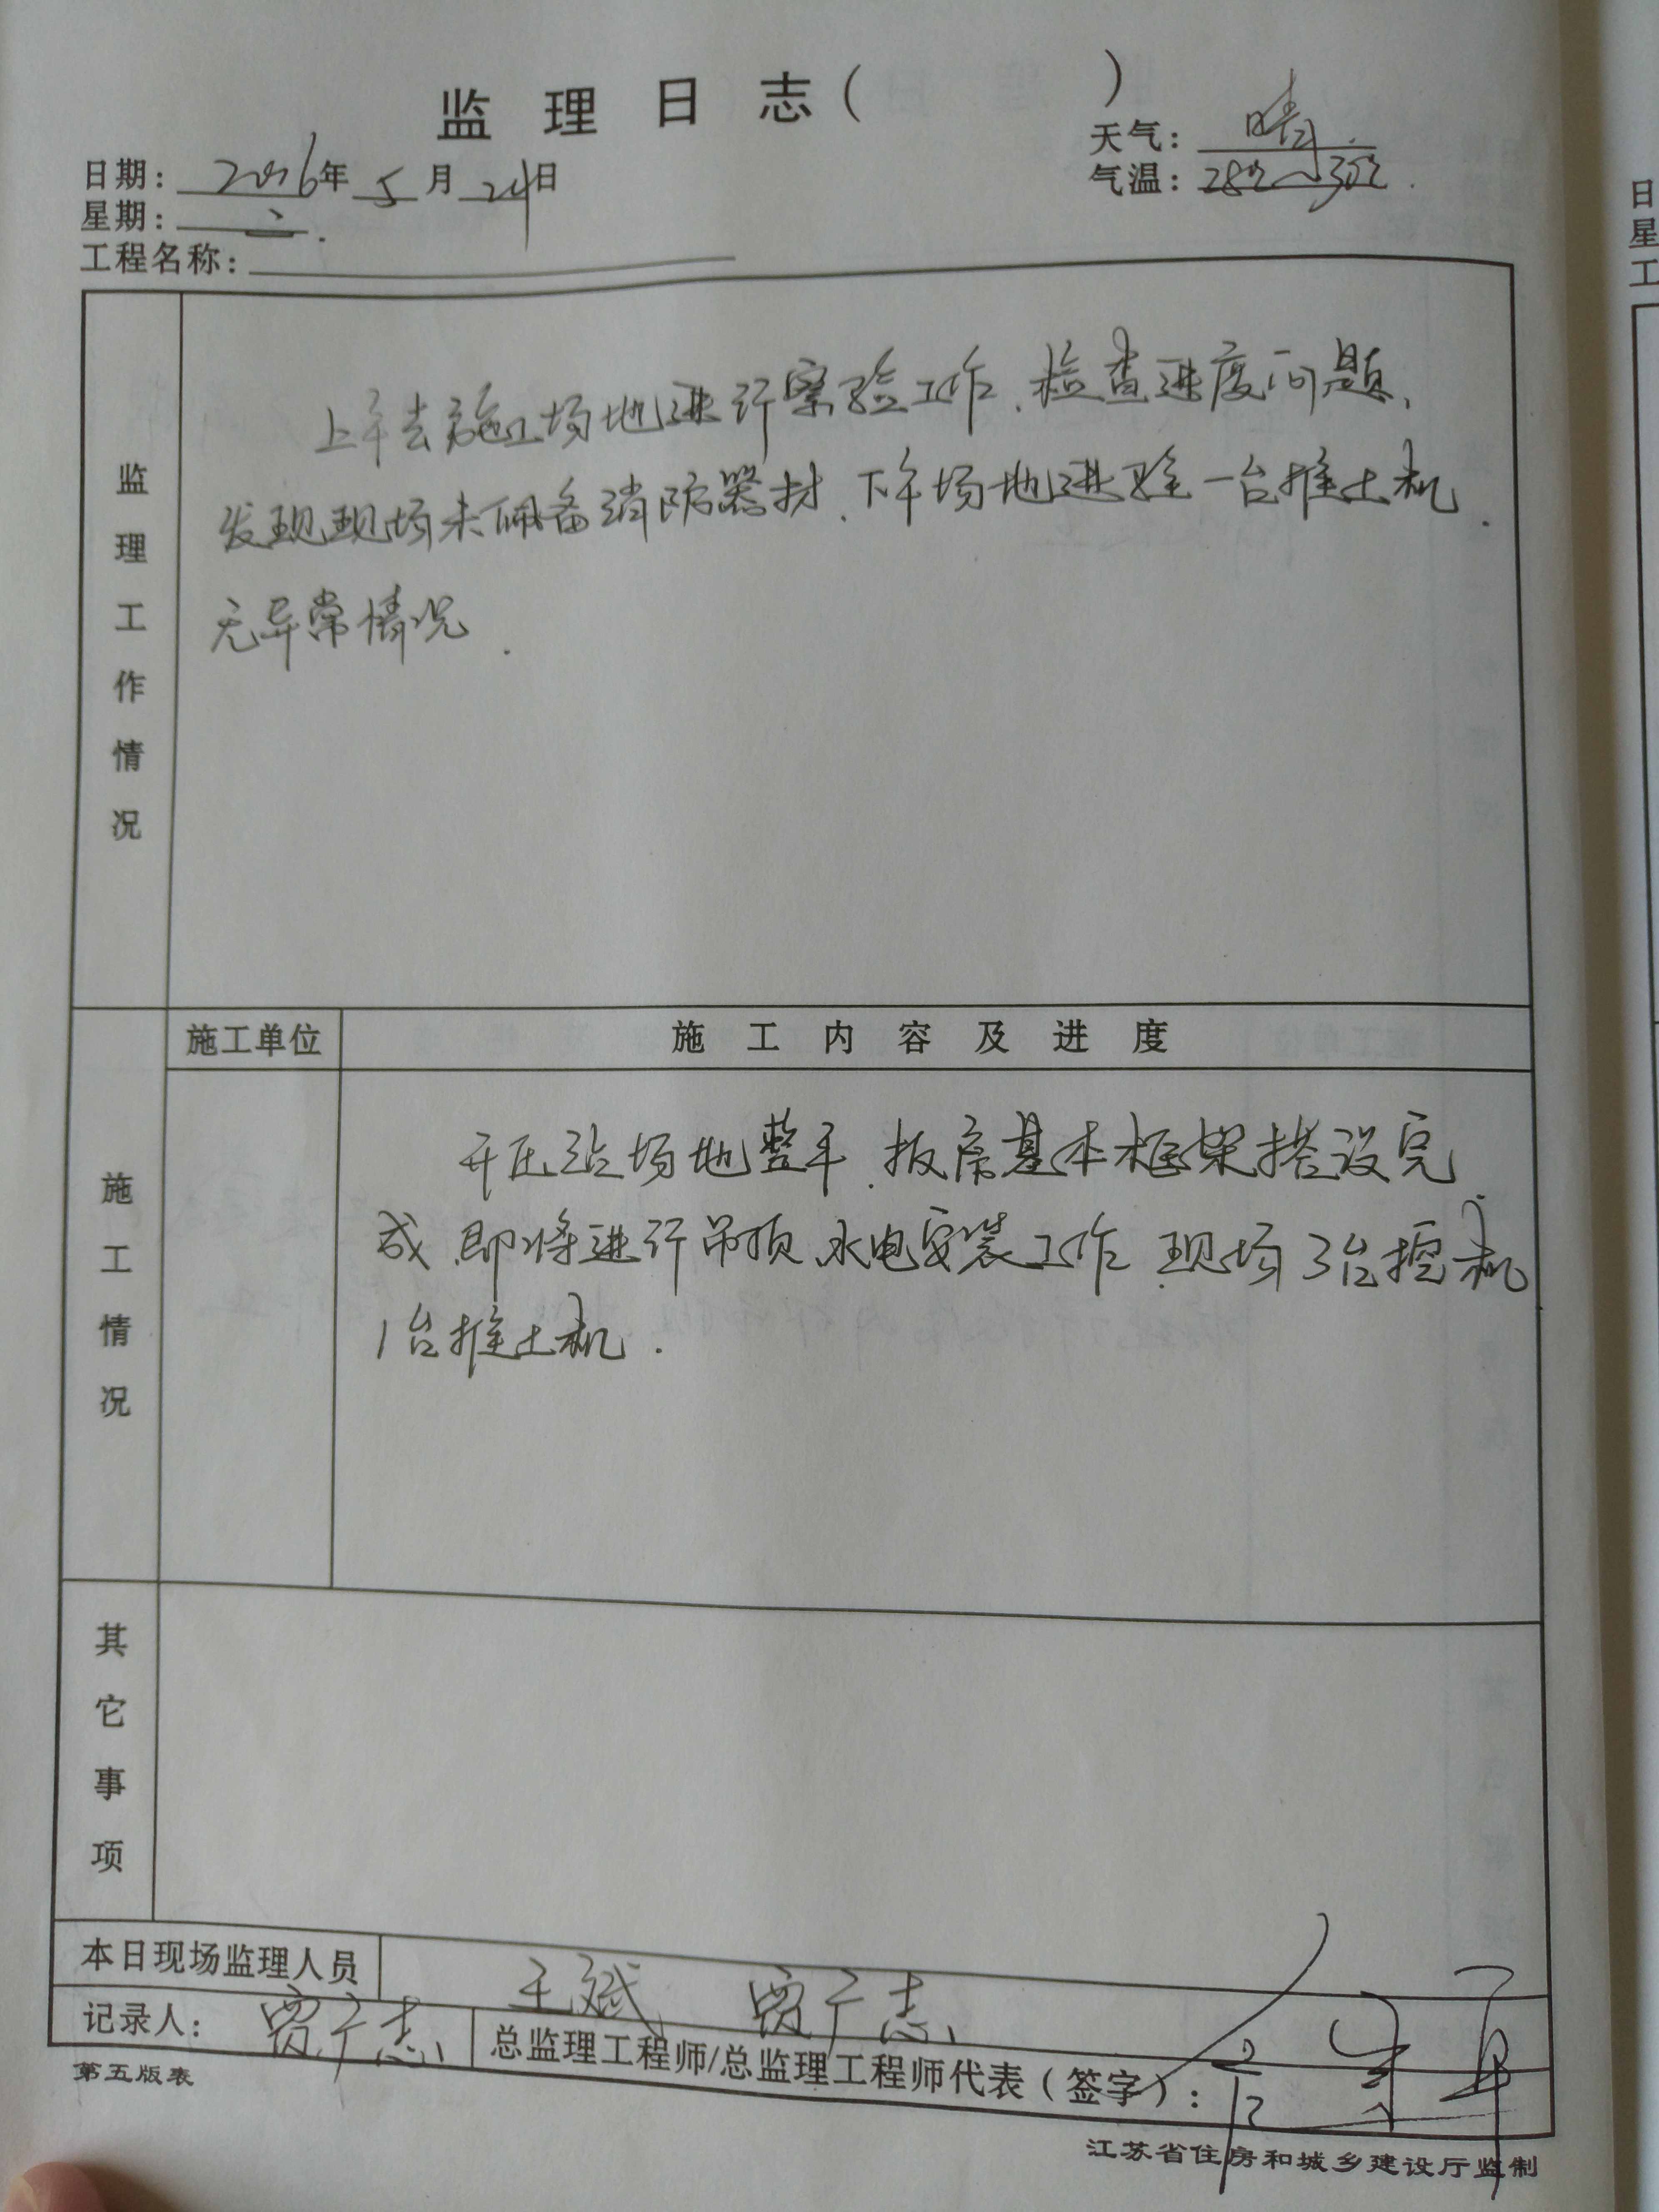 监理日志（ ）
日期：2016年5月24日
天气：晴
星期：二.
气温：28℃~30℃.
工程名称：
监理工作情况
上午去施工场地进行察验工作、检查进度问题、
发现现场未佩备消防器材、下午场地进验一台推土机.
无异常情况.
施工情况
施工单位
施工内容及进度
开压站场地整平.板房基本框架搭设完
成.即将进行吊顶.水电安装工作.现场3台挖机
1台推土机.
其它事项
本日现场监理人员
王斌 贾广志
记录人：贾广志
总监理工程师/总监理工程师代表（签字）：
第五版表
江苏省住房和城乡建设厅监制
日
星
工